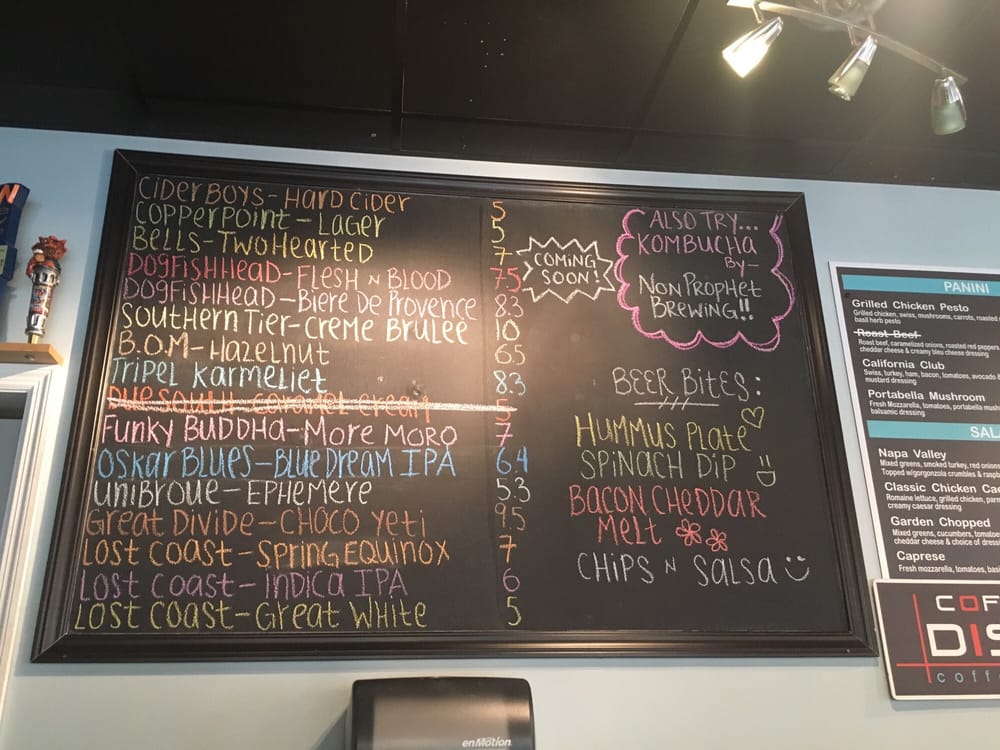 CIDERBOYS-HARD CIDER 5
COPPERPOINT-LAGER 5
BELLS-TWOHEARTED 7
DOGFISHHEAD-FLESH N BLOOD 7.5
DOGFISHHEAD-BIERE DE PROVENCE 8.3
SOUTHERN TIER-CREME BRULEE 10
B.O.M-HAZELNUT 65
TRIPEL KARMELIET 83
DUE SOUTH CARAMEL CREAM 5
FUNKY BUDDHA-MORE MORO 7
OSKAR BLUES-BLUE DREAM IPA 6.4
UNIBROUE-EPHEMERE 5.3
GREAT DIVIDE-CHOCO YETI 9.5
LOST COAST-SPRING EQUINOX 7
LOST COAST-INDICA IPA 6
LOST COAST-GREAT WHITE 5
COMING
SOON!
ALSO TRY...
KOMBUCHA
BY-
NON PROPHET
BREWING!!
BEER BITES:
HUMMUS PLATE
SPINACH DIP
BACON CHEDDAR
MELT
CHIPS N SALSA
PANINI
Grilled Chicken Pesto
Grilled chicken, swiss, mushrooms, carrots, roasted
basil herb pesto
Roast Beef
Roast beef, caramelized onions, roasted red peppers,
cheddar cheese & creamy bleu cheese dressing
California Club
Swiss, turkey, ham, bacon, tomatoes, avocado &
mustard dressing
Portabella Mushroom
Fresh Mozzarella, tomatoes, portabella
balsamic dressing
SAL
Napa Valley
Mixed greens, smoked turkey, red onions
Topped w/gorgonzola crumbles &
Classic Chicken
Romaine lettuce, grilled chicken,
creamy caesar dressing
Garden Chopped
Mixed greens, cucumbers,
cheddar cheese & choice of
Caprese
Fresh mozzarella, tomatoes,
COF
DIS
coff
enMotion